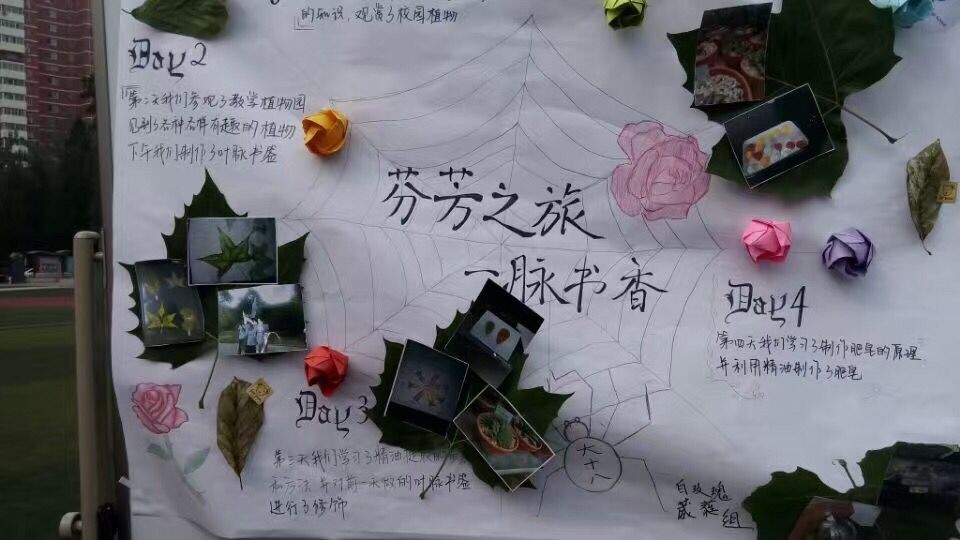 的知识，观赏了校园植物
Day 2
第二天我们参观了教学植物园
见到了各种各样有趣的植物
下午我们制作了叶脉书签
芬芳之旅
一脉书香
Day 4
第四天我们学习了制作肥皂的原理
并利用精油制作了肥皂
Day 3
第三天我们学习了精油提取的
和方法 并对前一天做的叶脉书签
进行了修饰
白玫瑰
组